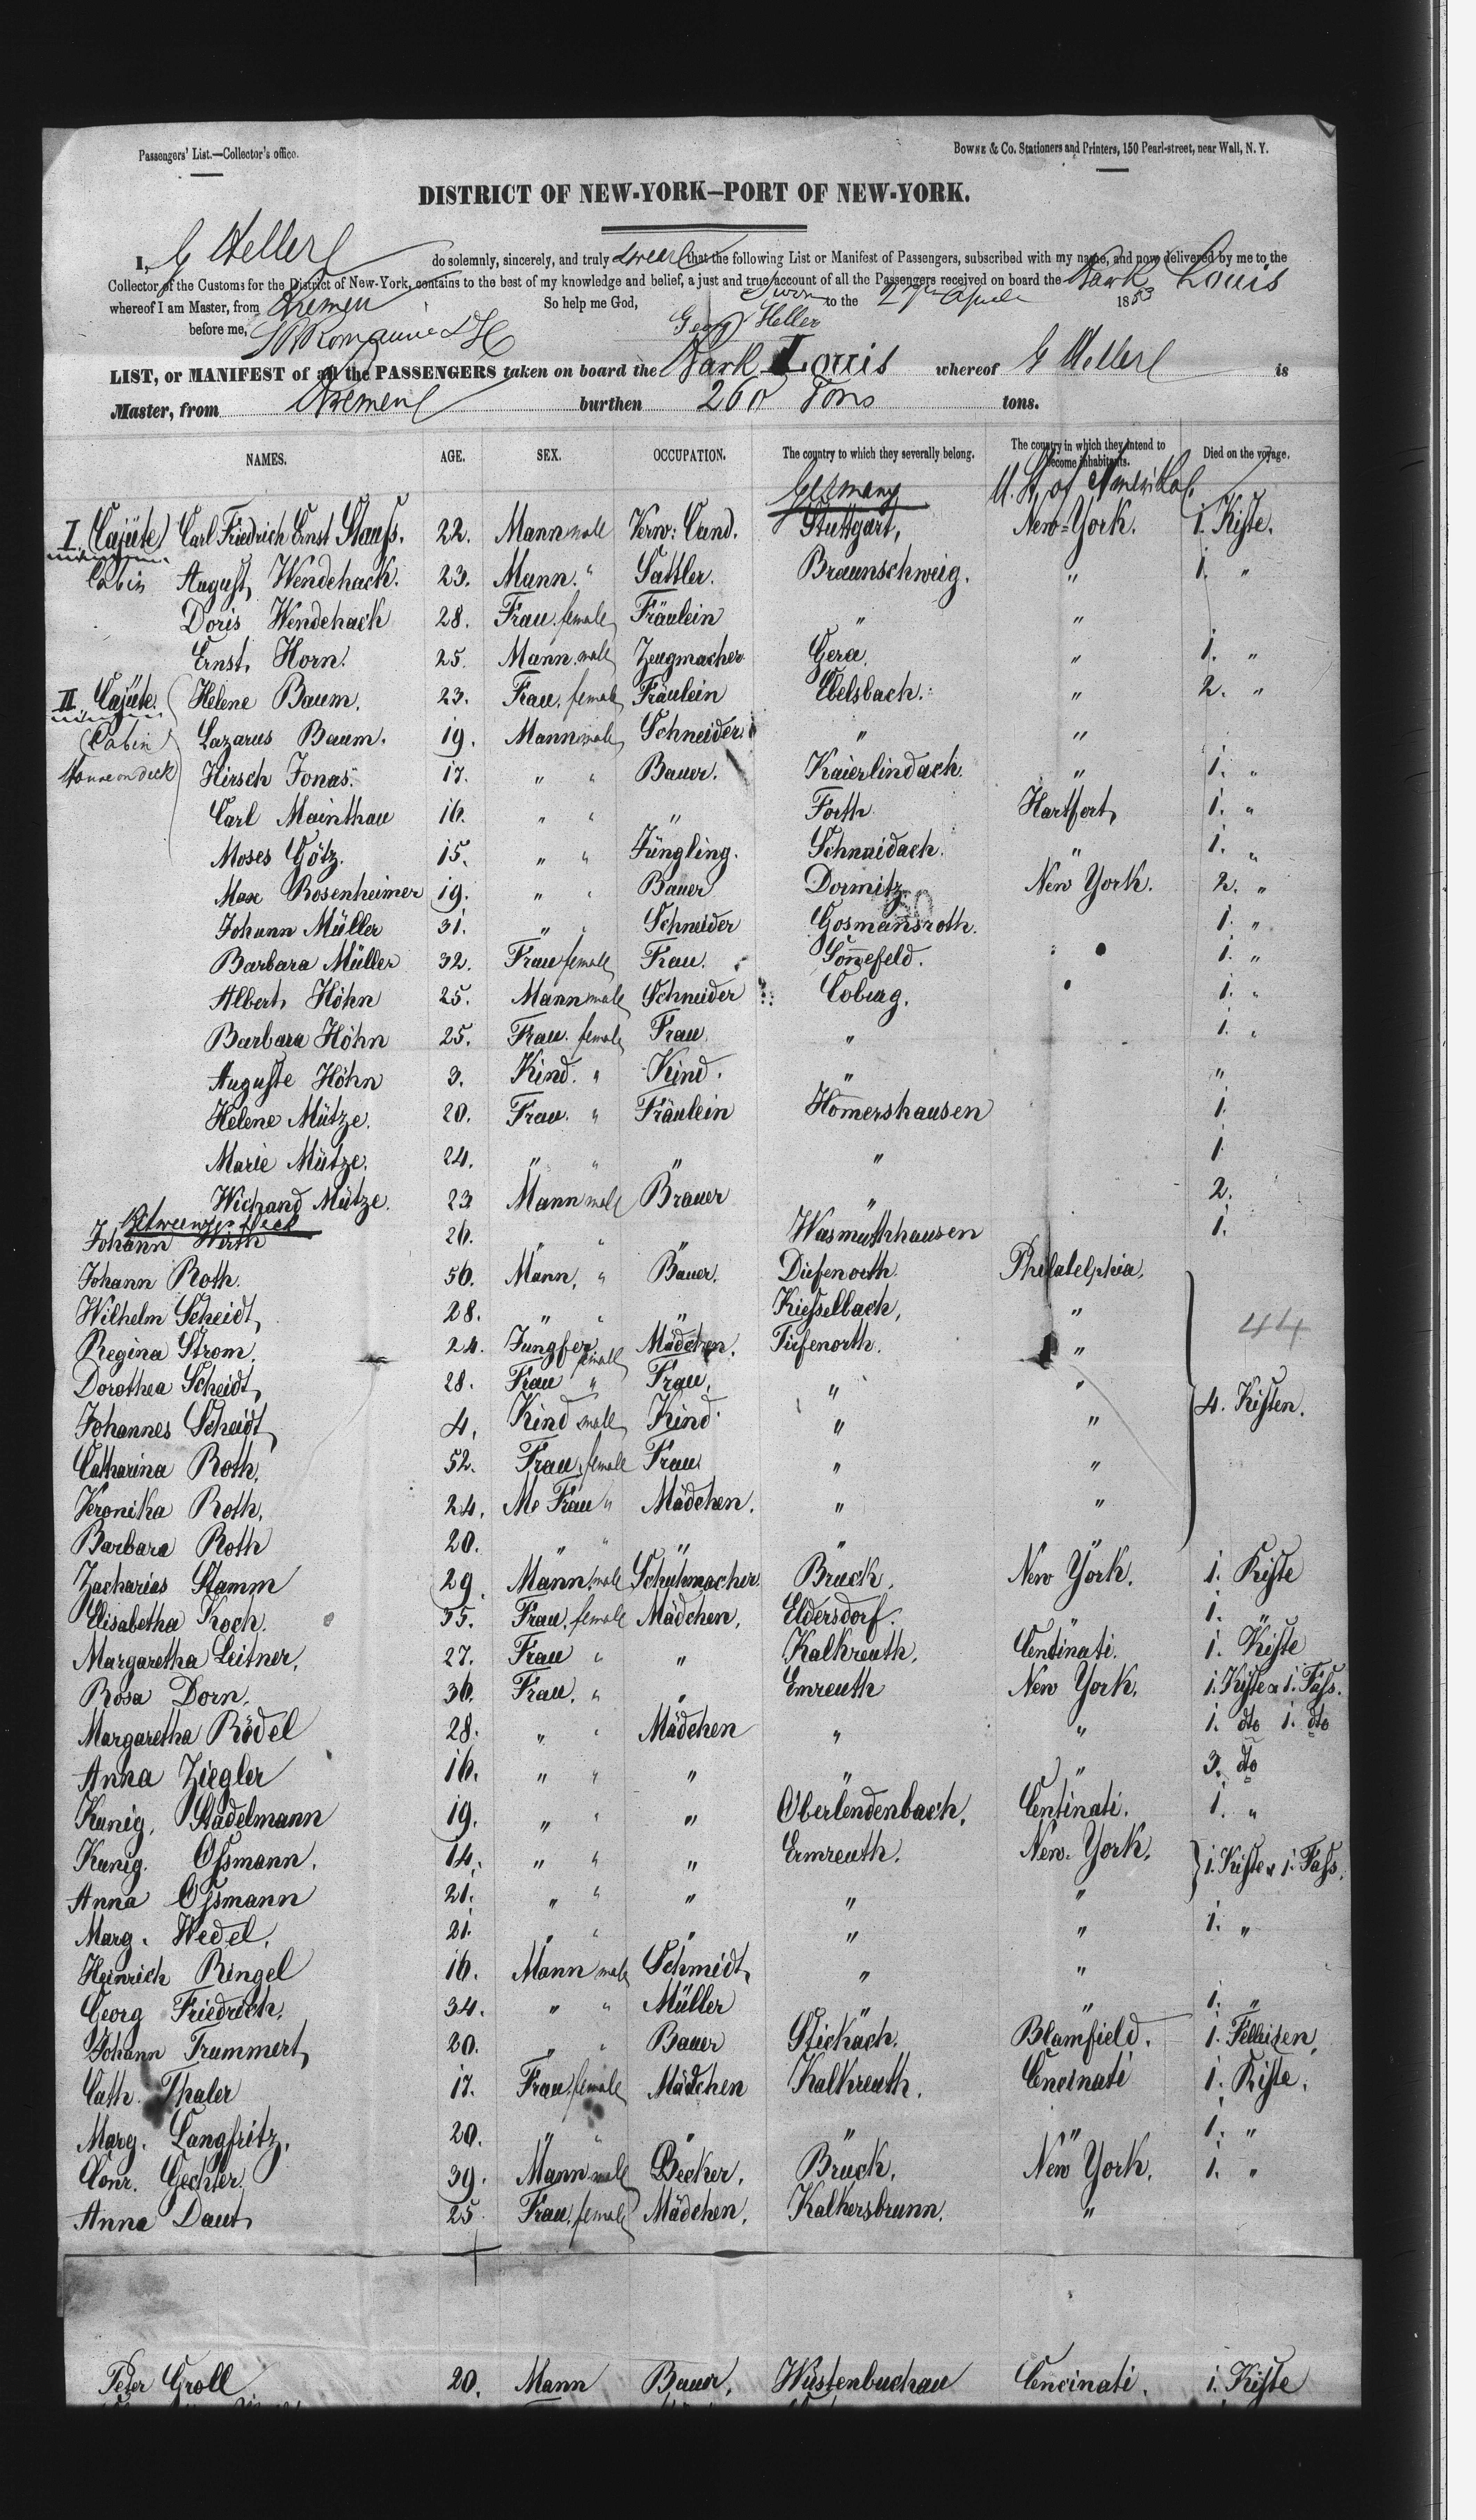 Passengers' List.—Collector's office.
BOWNE & Co. Stationers and Printers, 150 Pearl-street, near Wall, N. Y.
DISTRICT OF NEW-YORK—PORT OF NEW-YORK.
I, G Heller do solemnly, sincerely, and truly swear that the following List or Manifest of Passengers, subscribed with my name, and now delivered by me to the
Collector of the Customs for the District of New-York, contains to the best of my knowledge and belief, a just and true account of all the Passengers received on board the Bark Louis
whereof I am Master, from Bremen So help me God, Sworn to the 27 April 1853
before me, Georg Heller
LIST, or MANIFEST of all the PASSENGERS taken on board the Bark Louis whereof G Heller is
Master, from Bremen burthen 260 Tons tons.
NAMES. AGE. SEX. OCCUPATION. The country to which they severally belong. The country in which they intend to become inhabitants. Died on the voyage.
Germany U. St. of Amerika
I Cajüte Carl Friedrich Ernst Stauss. 22. Mann male Verw: Cand. Stuttgart, New-York. 1. Kiste.
Cabin August Wendehack. 23. Mann. " Sattler. Braunschweig. " 1. "
Doris Wendehack 28. Frau. female Fräulein " "
Ernst Horn. 25. Mann. male Zeugmacher Gera. " 1. "
II Cajüte. Helene Baum. 23. Frau. female Fräulein Ebelsbach. " 2. "
(Cabin) Lazarus Baum. 19. Mann male Schneider " "
House on deck Hirsch Jonas. 17. " " Bauer. Kaierlindach. " 1. "
Carl Mainthau 16. " " " Forth Hartfort, 1. "
Moses Götz. 15. " " Jüngling. Schnaidach. " 1. "
Max Rosenheimer 19. " " Bauer Dormitz New York. 2. "
Johann Müller 31. " " Schneider Gosmansroth. 1. "
Barbara Müller 32. Frau female Frau. Son̄efeld. 1. "
Albert Höhn 25. Mann male Schneider Coburg. 1. "
Barbara Höhn 25. Frau. female Frau " 1. "
Auguste Höhn 3. Kind. " Kind. " "
Helene Mütze. 20. Frau. " Fräulein Hom̄ershausen 1.
Marie Mütze. 24. " " " " 1
Wichand Mütze. 23 Mann male Brauer " 2.
Between deck
Johann Wirth 26. " " " Wasmuthhausen 1.
Johann Roth. 56. Mann. " Bauer. Diefenorth. Philatelphia.
Wilhelm Scheidt, 28. " " " Kiesselbach, " 44
Regina Strom. 24. Jungfer. female Mädchen. Tiefenorth. "
Dorothea Scheidt, 28. Frau " Frau. " "
Johannes Scheidt, 4. Kind male Kind " " 4. Kisten.
Catharina Roth. 52. Frau. female Frau " "
Veronika Roth. 24. Me Frau " Mädchen. " "
Barbara Roth 20. " " " "
Zacharias Stamm 29. Mann. male Schuhmacher. Bruck. New York. 1. Kiste
Elisabetha Koch. 35. Frau. female Mädchen. Eldersdorf. " 1. "
Margaretha Leitner. 27. Frau " " Kalkreuth. Centinati. 1. Kiste
Rosa Dorn. 36. Frau. " " Emreuth New York. 1. Kiste & 1. Fass.
Margaretha Rödel 28. " " Mädchen " " 1. dto 1. dto
Anna Ziegler 16. " " " " " 3. dto
Kunig. Stadelmann 19. " " " Oberlendenbach. Centinati. 1. "
Kunig. Ossmann. 14. " " " Ermreuth. New-York. 1. Kiste & 1. Fass.
Anna Ossmann 21. " " " " "
Marg. Wedel. 21. " " " " " 1. "
Heinrich Ringel 16. Mann male Schmidt, " "
Georg Friedrich. 34. " " Müller " " 1. "
Johann Trummert, 20. " " Bauer Stickach. Blamfield. 1. Felleisen.
Cath. Thaler 17. Frau. female Mädchen Kalkreuth. Cencinati 1. Kiste.
Marg. Langfritz. 20. " " " " " 1. "
Conr. Gechter. 39. Mann male Becker. Bruck. New York. 1. "
Anna Daut, 25 Frau. female Mädchen. Kalkersbrunn. "
Peter Groll 20. Mann Bauer. Wüstenbuchau Cencinati. 1. Kiste